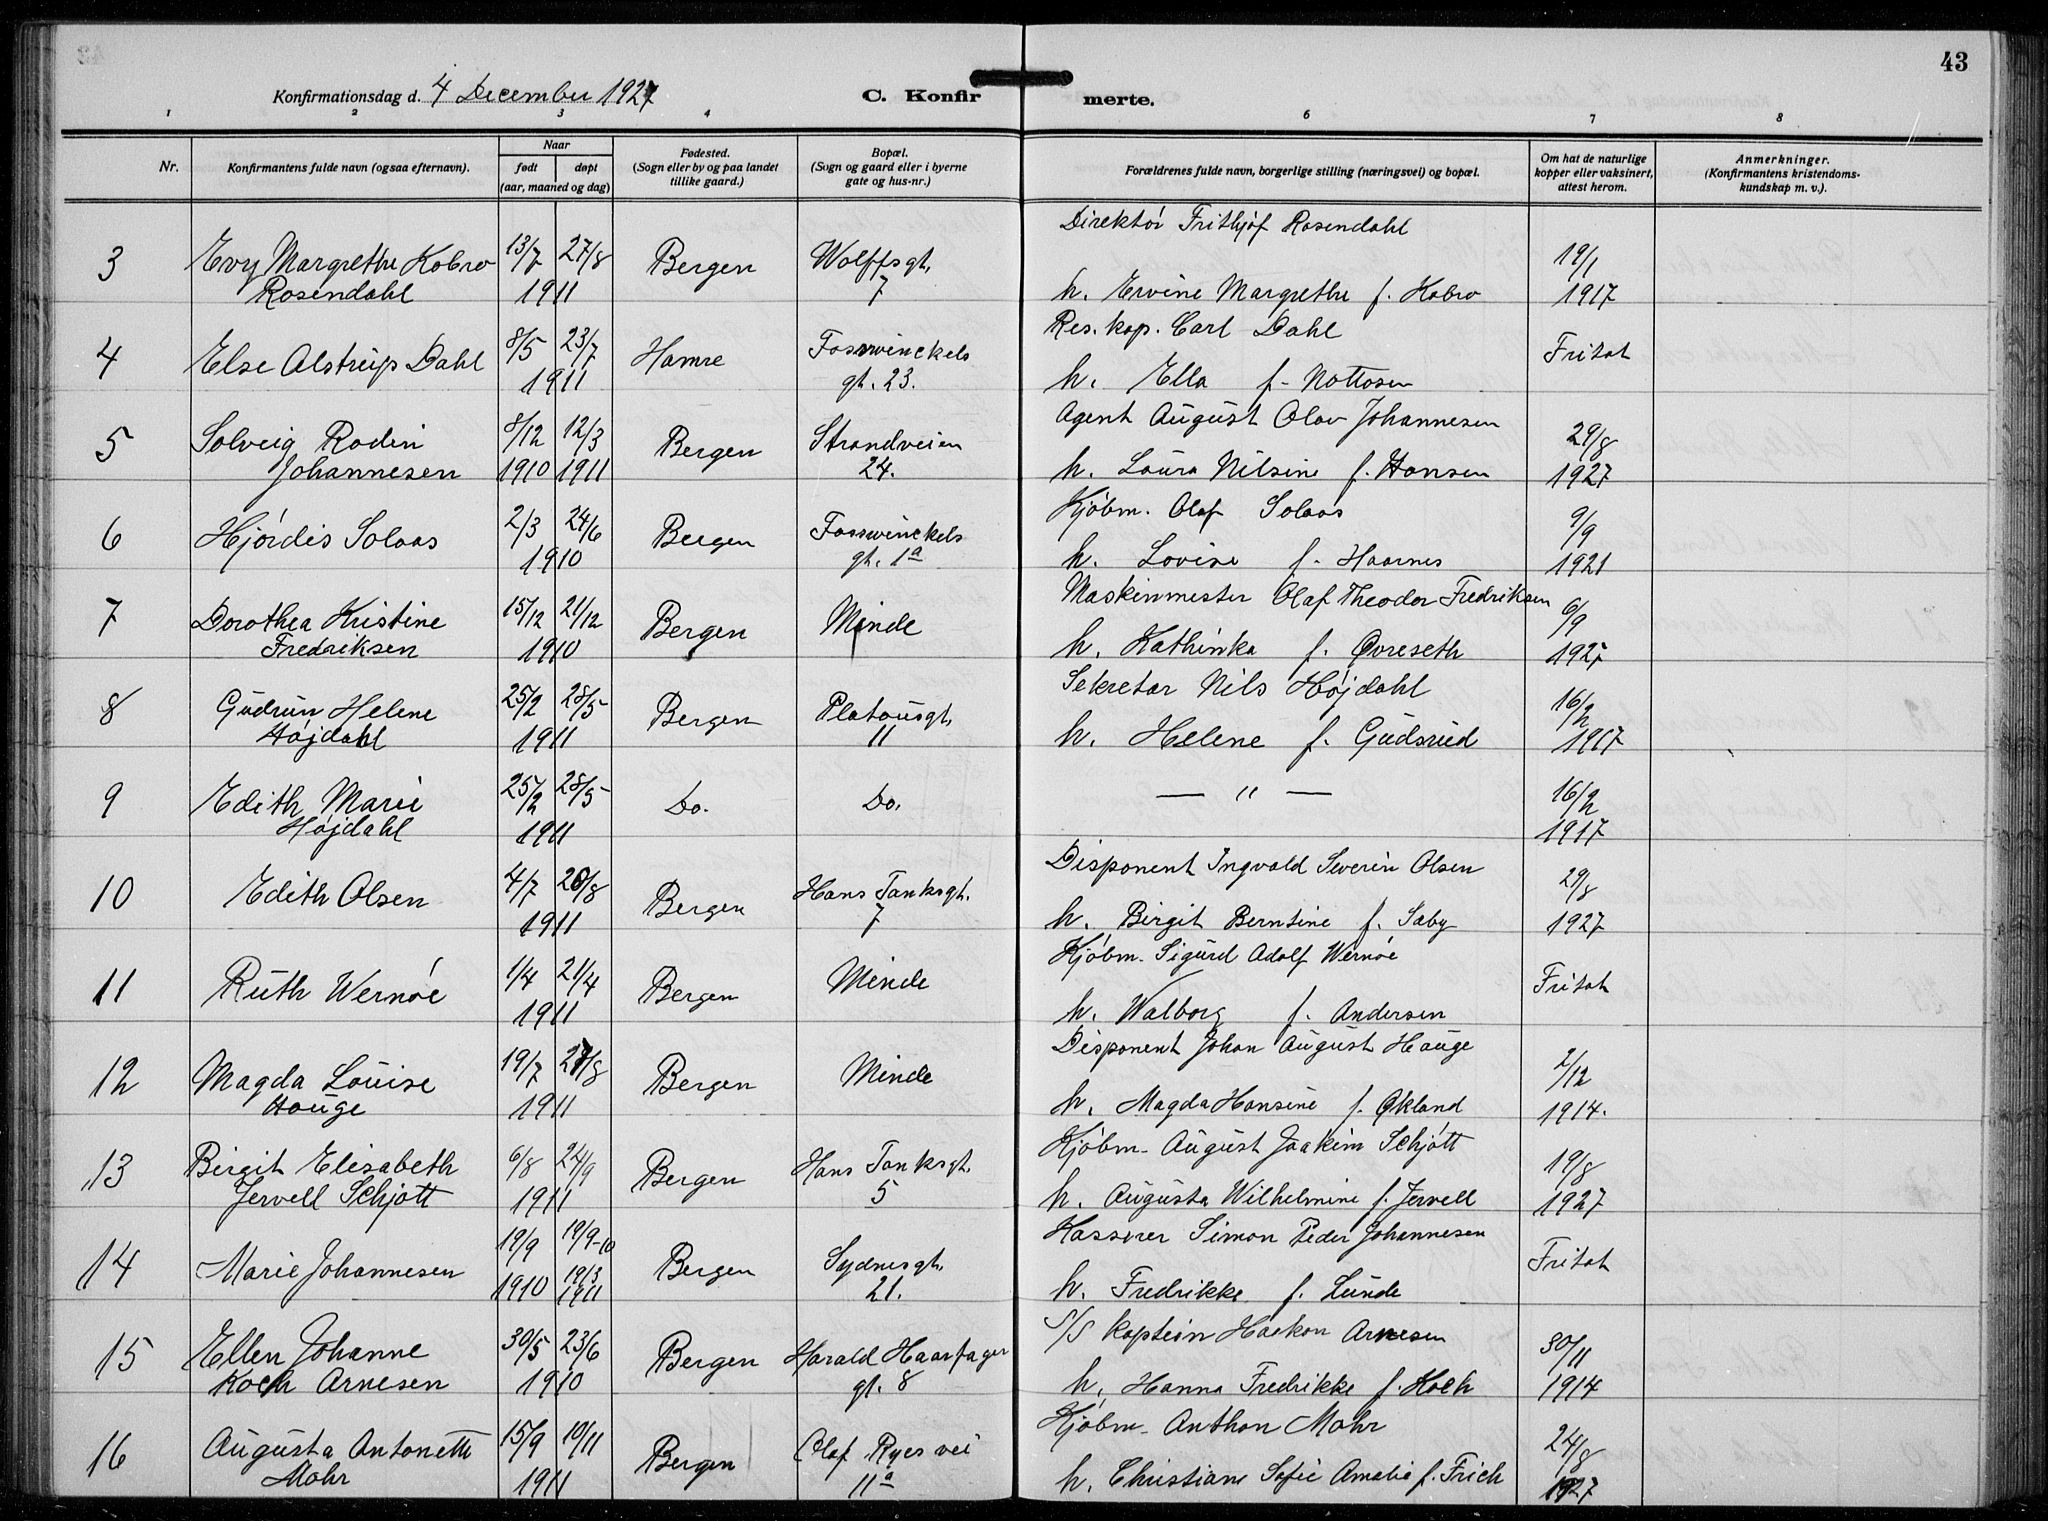 43
Konfirmationsdag d. 4 December 1927
C. Konfirmerte.
1 2 3 4 6 7 8
Nr.
Konfirmantens fulde navn (ogsaa efternavn).
Naar
født døpt
(aar, maaned og dag)
Fødested.
(Sogn eller by og paa landet
tillike gaard.)
Bopæl.
(Sogn og gaard eller i byerne
gate og hus-nr.)
Forældrenes fulde navn, borgerlige stilling (næringsvei) og bopæl.
Om hat de naturlige
kopper eller vaksinert,
attest herom.
Anmerkninger.
(Konfirmantens kristendoms-
kundskap m. v.).
3 Evy Margrethe Kobro 13/7 27/8 Bergen Wolffsgt. Direktör Frithjof Rosendahl 19/1
Rosendahl 1911 7 h. Ervine Margrethe f. Kobro 1917
4 Else Alstrup Dahl 8/5 23/7 Hamre Fosswinckels Res. kap. Carl Dahl Fritat
1911 gt. 23. h. Ella f. Nottosen
5 Solveig Rodin 8/12 12/3 Bergen Strandveien Agent August Olav Johannesen 29/8
Johannesen 1910 1911 24. h. Laura Nilsine f. Hansen 1927
6 Hjördis Solaas 2/3 24/6 Bergen Fosswinckels Kjöbm. Olaf Solaas 9/9
1910 gt. 1a h. Lovise f. Haarnes 1921
7 Dorothea Kristine 15/12 21/12 Bergen Minde Maskinmester Olaf Theodor Fredriksen 6/9
Fredriksen 1910 h. Kathinka f. Øvreseth 1927
8 Gudrun Helene 25/2 28/5 Bergen Platousgt. Sekretær Nils Højdahl 16/2
Højdahl 1911 11 h. Helene f. Gudsrud 1917
9 Edith Marie 25/2 28/5 Do. Do. — " — 16/2
Højdahl 1911 1917
10 Edith Olsen 4/7 20/8 Bergen Hans Tanksgt. Disponent Ingvald Severin Olsen 29/8
1911 7 h. Birgit Berntine f. Sæby 1927
11 Ruth Wernöe 1/4 21/4 Bergen Minde Kjöbm. Sigurd Adolf Wernöe Fritat
1911 h. Walborg f. Andersen
12 Magda Louise 19/7 27/8 Bergen Minde Disponent Johan August Hauge 2/12
Hauge 1911 h. Magda Hansine f. Økland 1914.
13 Birgit Elisabeth 6/8 24/9 Bergen Hans Tanksgt. Kjöbm. August Joakim Schjött 19/8
Jervell Schjött 1911 5 h. Augusta Wilhelmine f. Jervell 1927
14 Marie Johannesen 19/9 19/9-10 Bergen Sydnesgt. Kasserer Simon Peder Johannesen Fritat
1910 19/3 1911 21. h. Fredrikke f. Lunde
15 Ellen Johanne 30/5 23/6 Bergen Harald Haarfager S/S kaptein Haakon Arnesen 30/11
Koch Arnesen 1910 gt. 8 h. Hanna Fredrikke f. Koch 1914
16 Augusta Antonette 15/9 10/11 Bergen Olaf Ryes vei Kjöbm. Anthon Mohr 24/8
Mohr 1911 11a h. Christiane Sofie Amalie f. Frich 1927